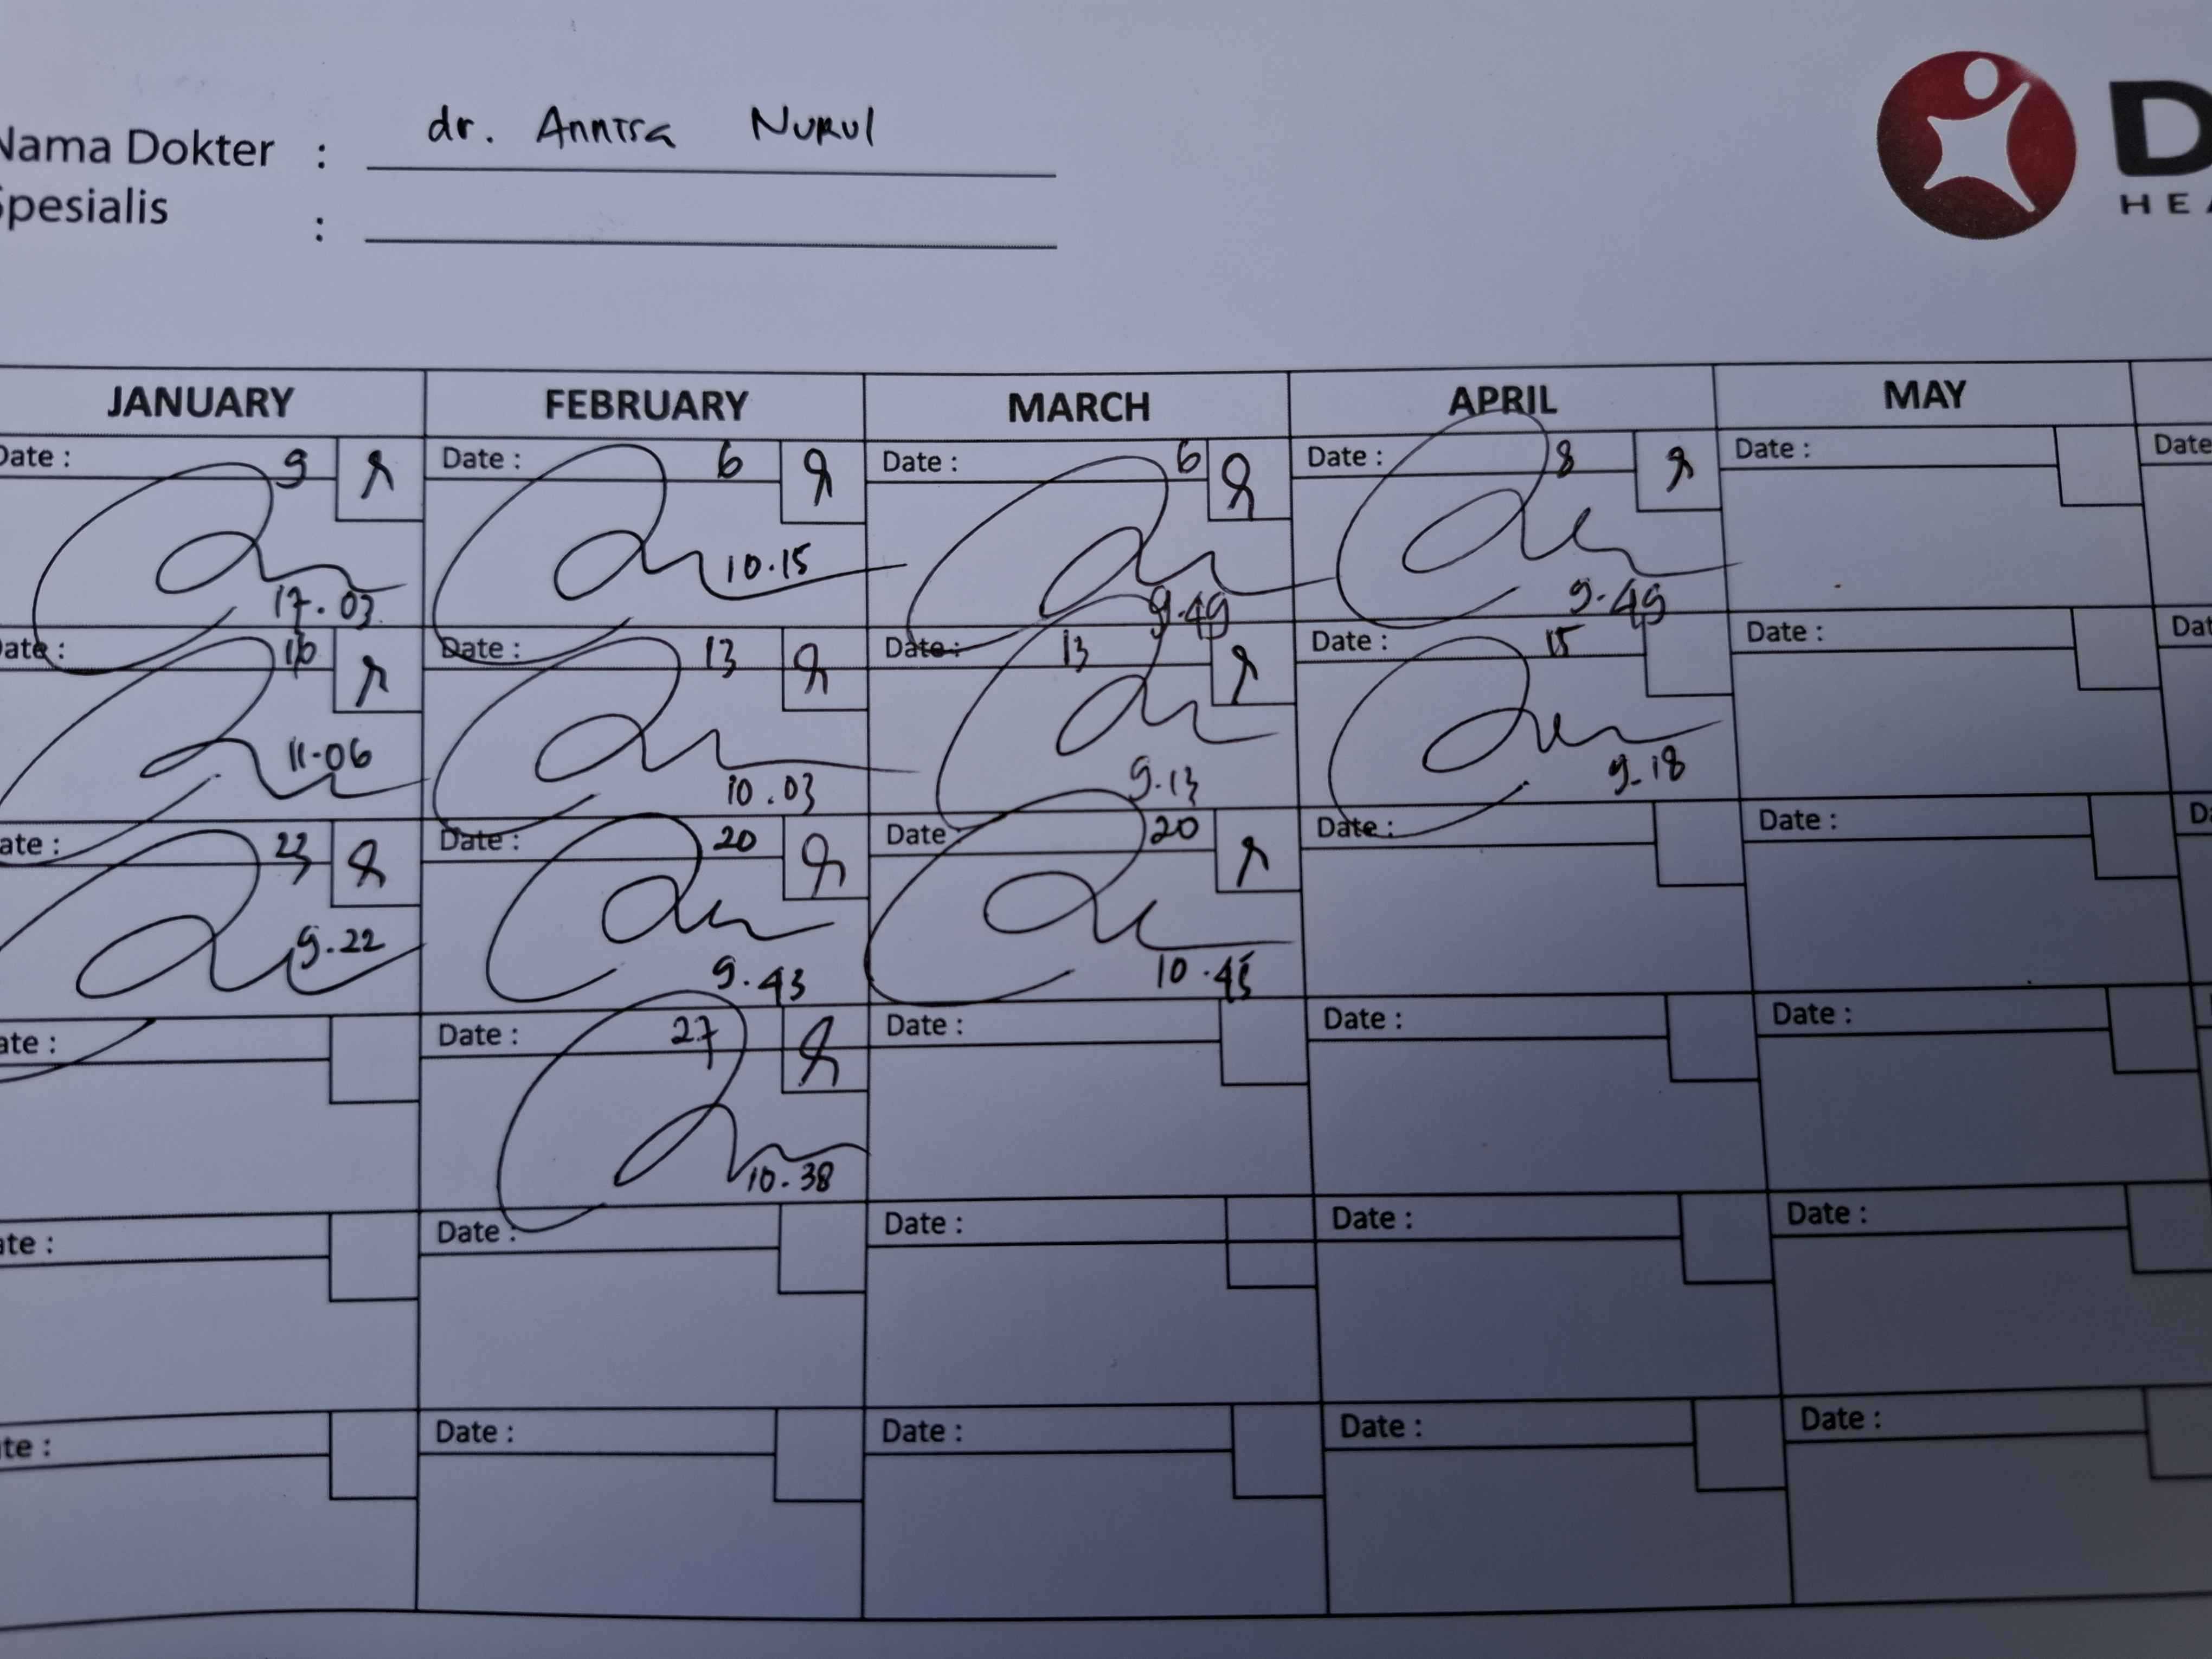 Nama Dokter : dr. Annisa Nurul
Spesialis :
D
HEA
JANUARY FEBRUARY MARCH APRIL MAY
Date : 9 Date : 6 Date : 6 Date : 8 Date : Date
17.03 10.15 9.49 9.49
Date : 16 Date : 13 Date : 13 Date : 15 Date : Dat
11.06 10.03 9.13 9.18
ate : 23 Date : 20 Date 20 Date : Date : Da
9.22 9.43 10.45
ate : Date : 27 Date : Date : Date :
10.38
ate : Date : Date : Date : Date :
te : Date : Date : Date : Date :